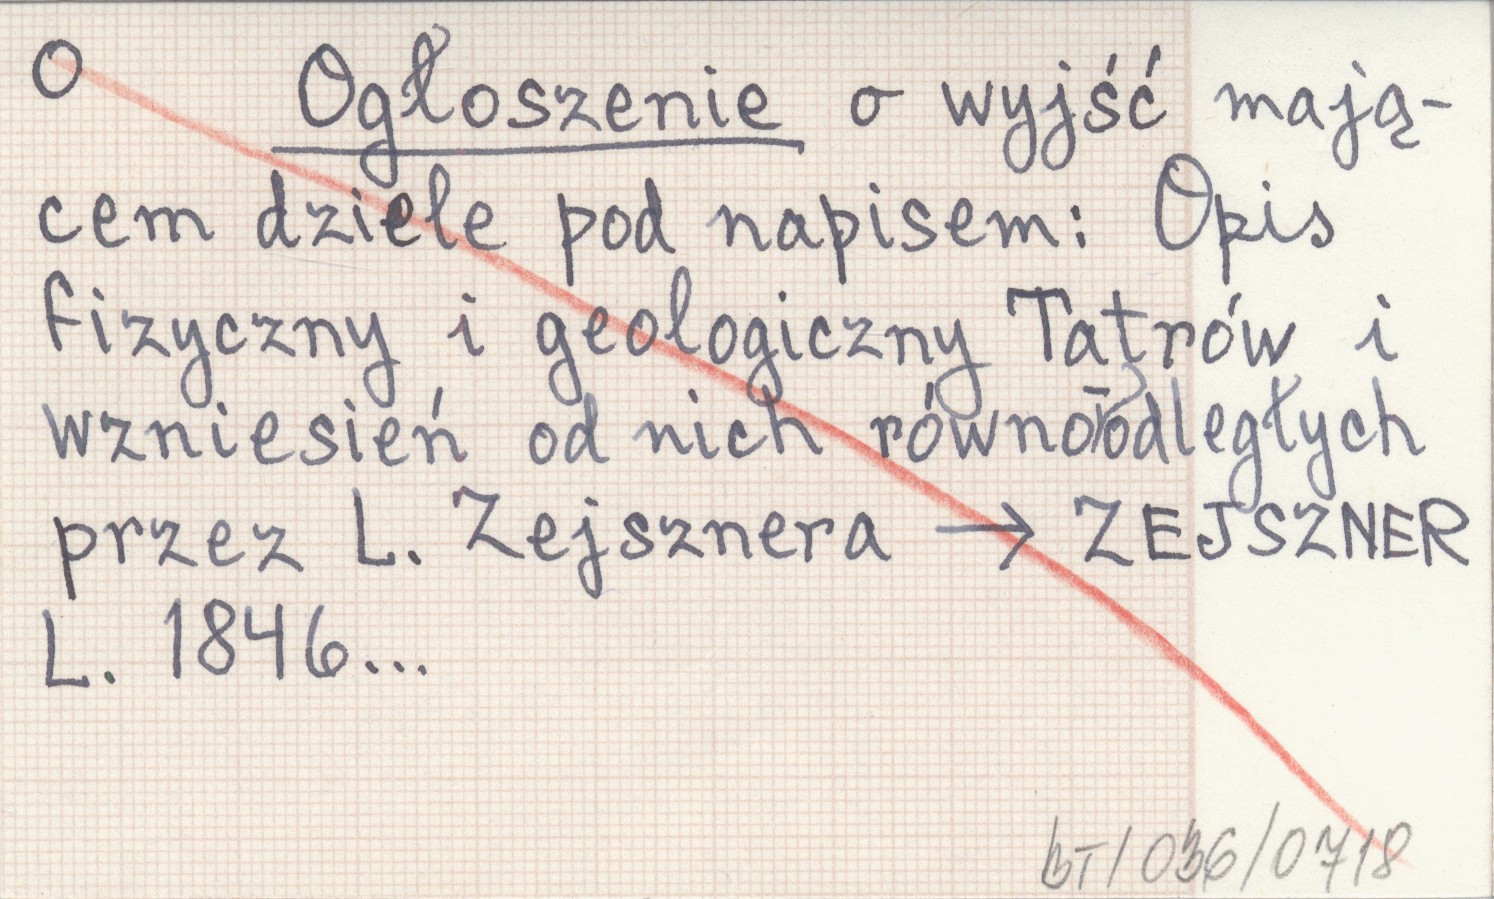 O Ogłoszenie o wyjść mają-
cem dziele pod napisem: Opis
fizyczny i geologiczny Tatrów i
wzniesień od nich równoodległych
przez L. Zejsznera → ZEJSZNER
L. 1846...
BT/036/0718